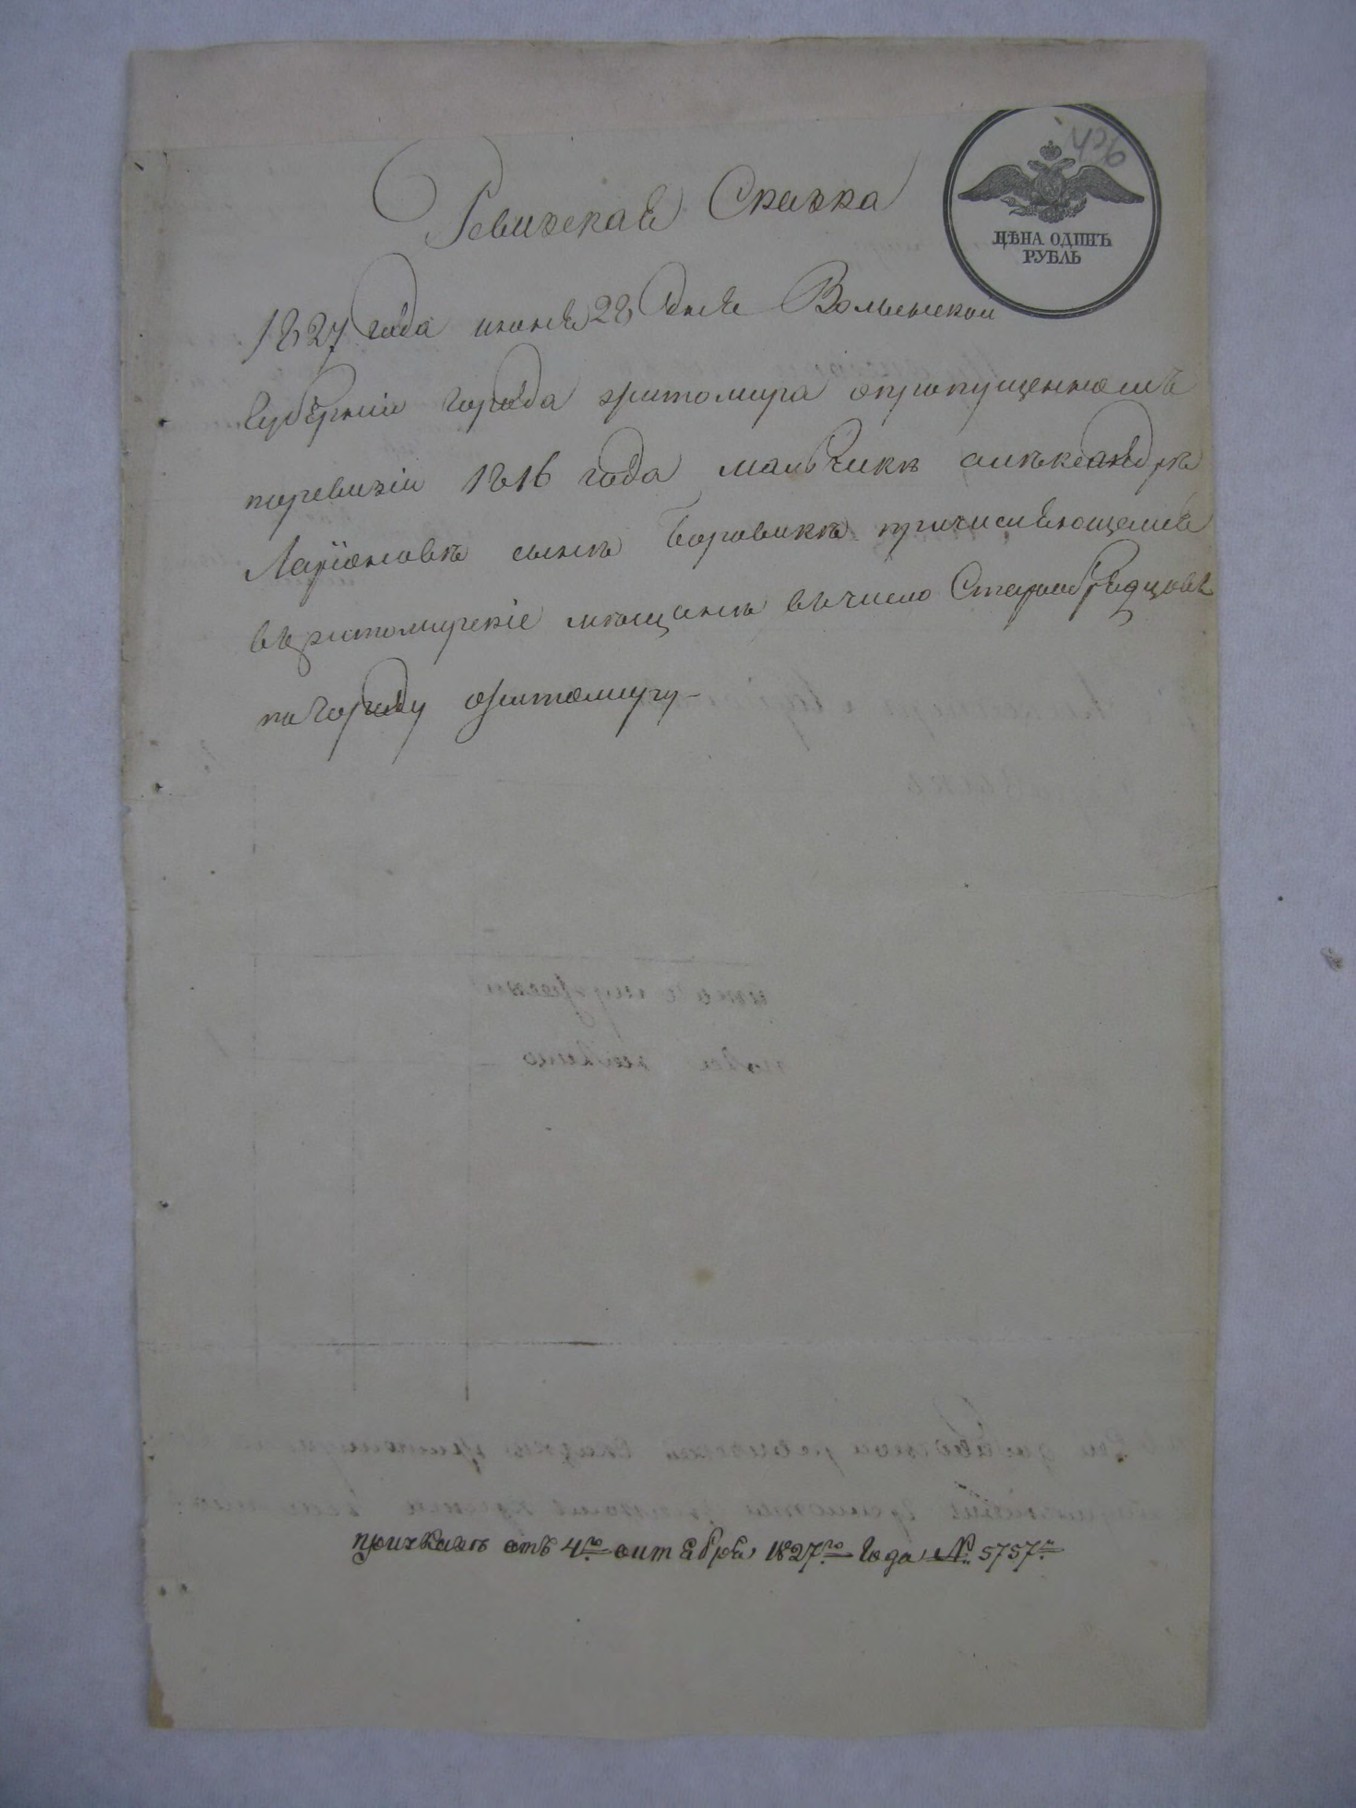 426
ЦѢНА ОДИНЪ
РУБЛЬ
Ревизская Сказка
1827 года июня 28 дня Волынской
Губерніи города житомира опропущенномъ
поревизіи 1816 года мальчикъ алъксандръ
Ларіоновъ сынъ Боровикъ причисляющемся
въжитомирскіе мѣщанъ въчисло Старообрядцовъ
погороду житомиру
приказъ отъ 4го октября 1827го года № 5757